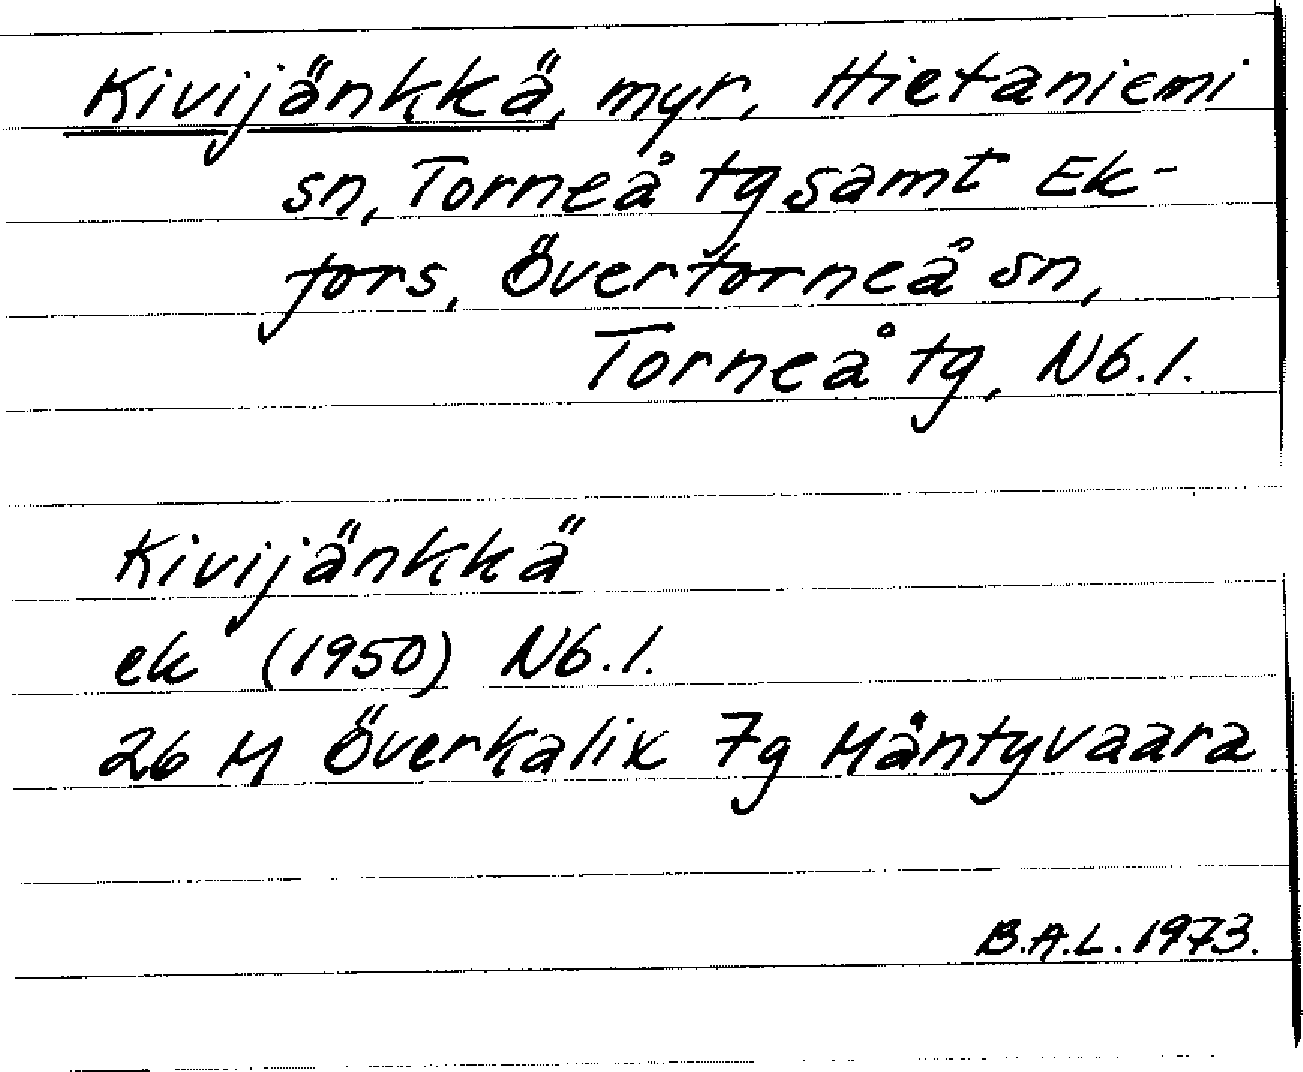 Kivijänkkä, myr, Hietaniemi
sn, Torneå tg samt Ek-
fors, Övertorneå sn,
Torneå tg, Nb.l.
Kivijänkkä
ek (1950) Nb.l.
26 M Överkalix 7g Måntyvaara
B.A.L. 1973.